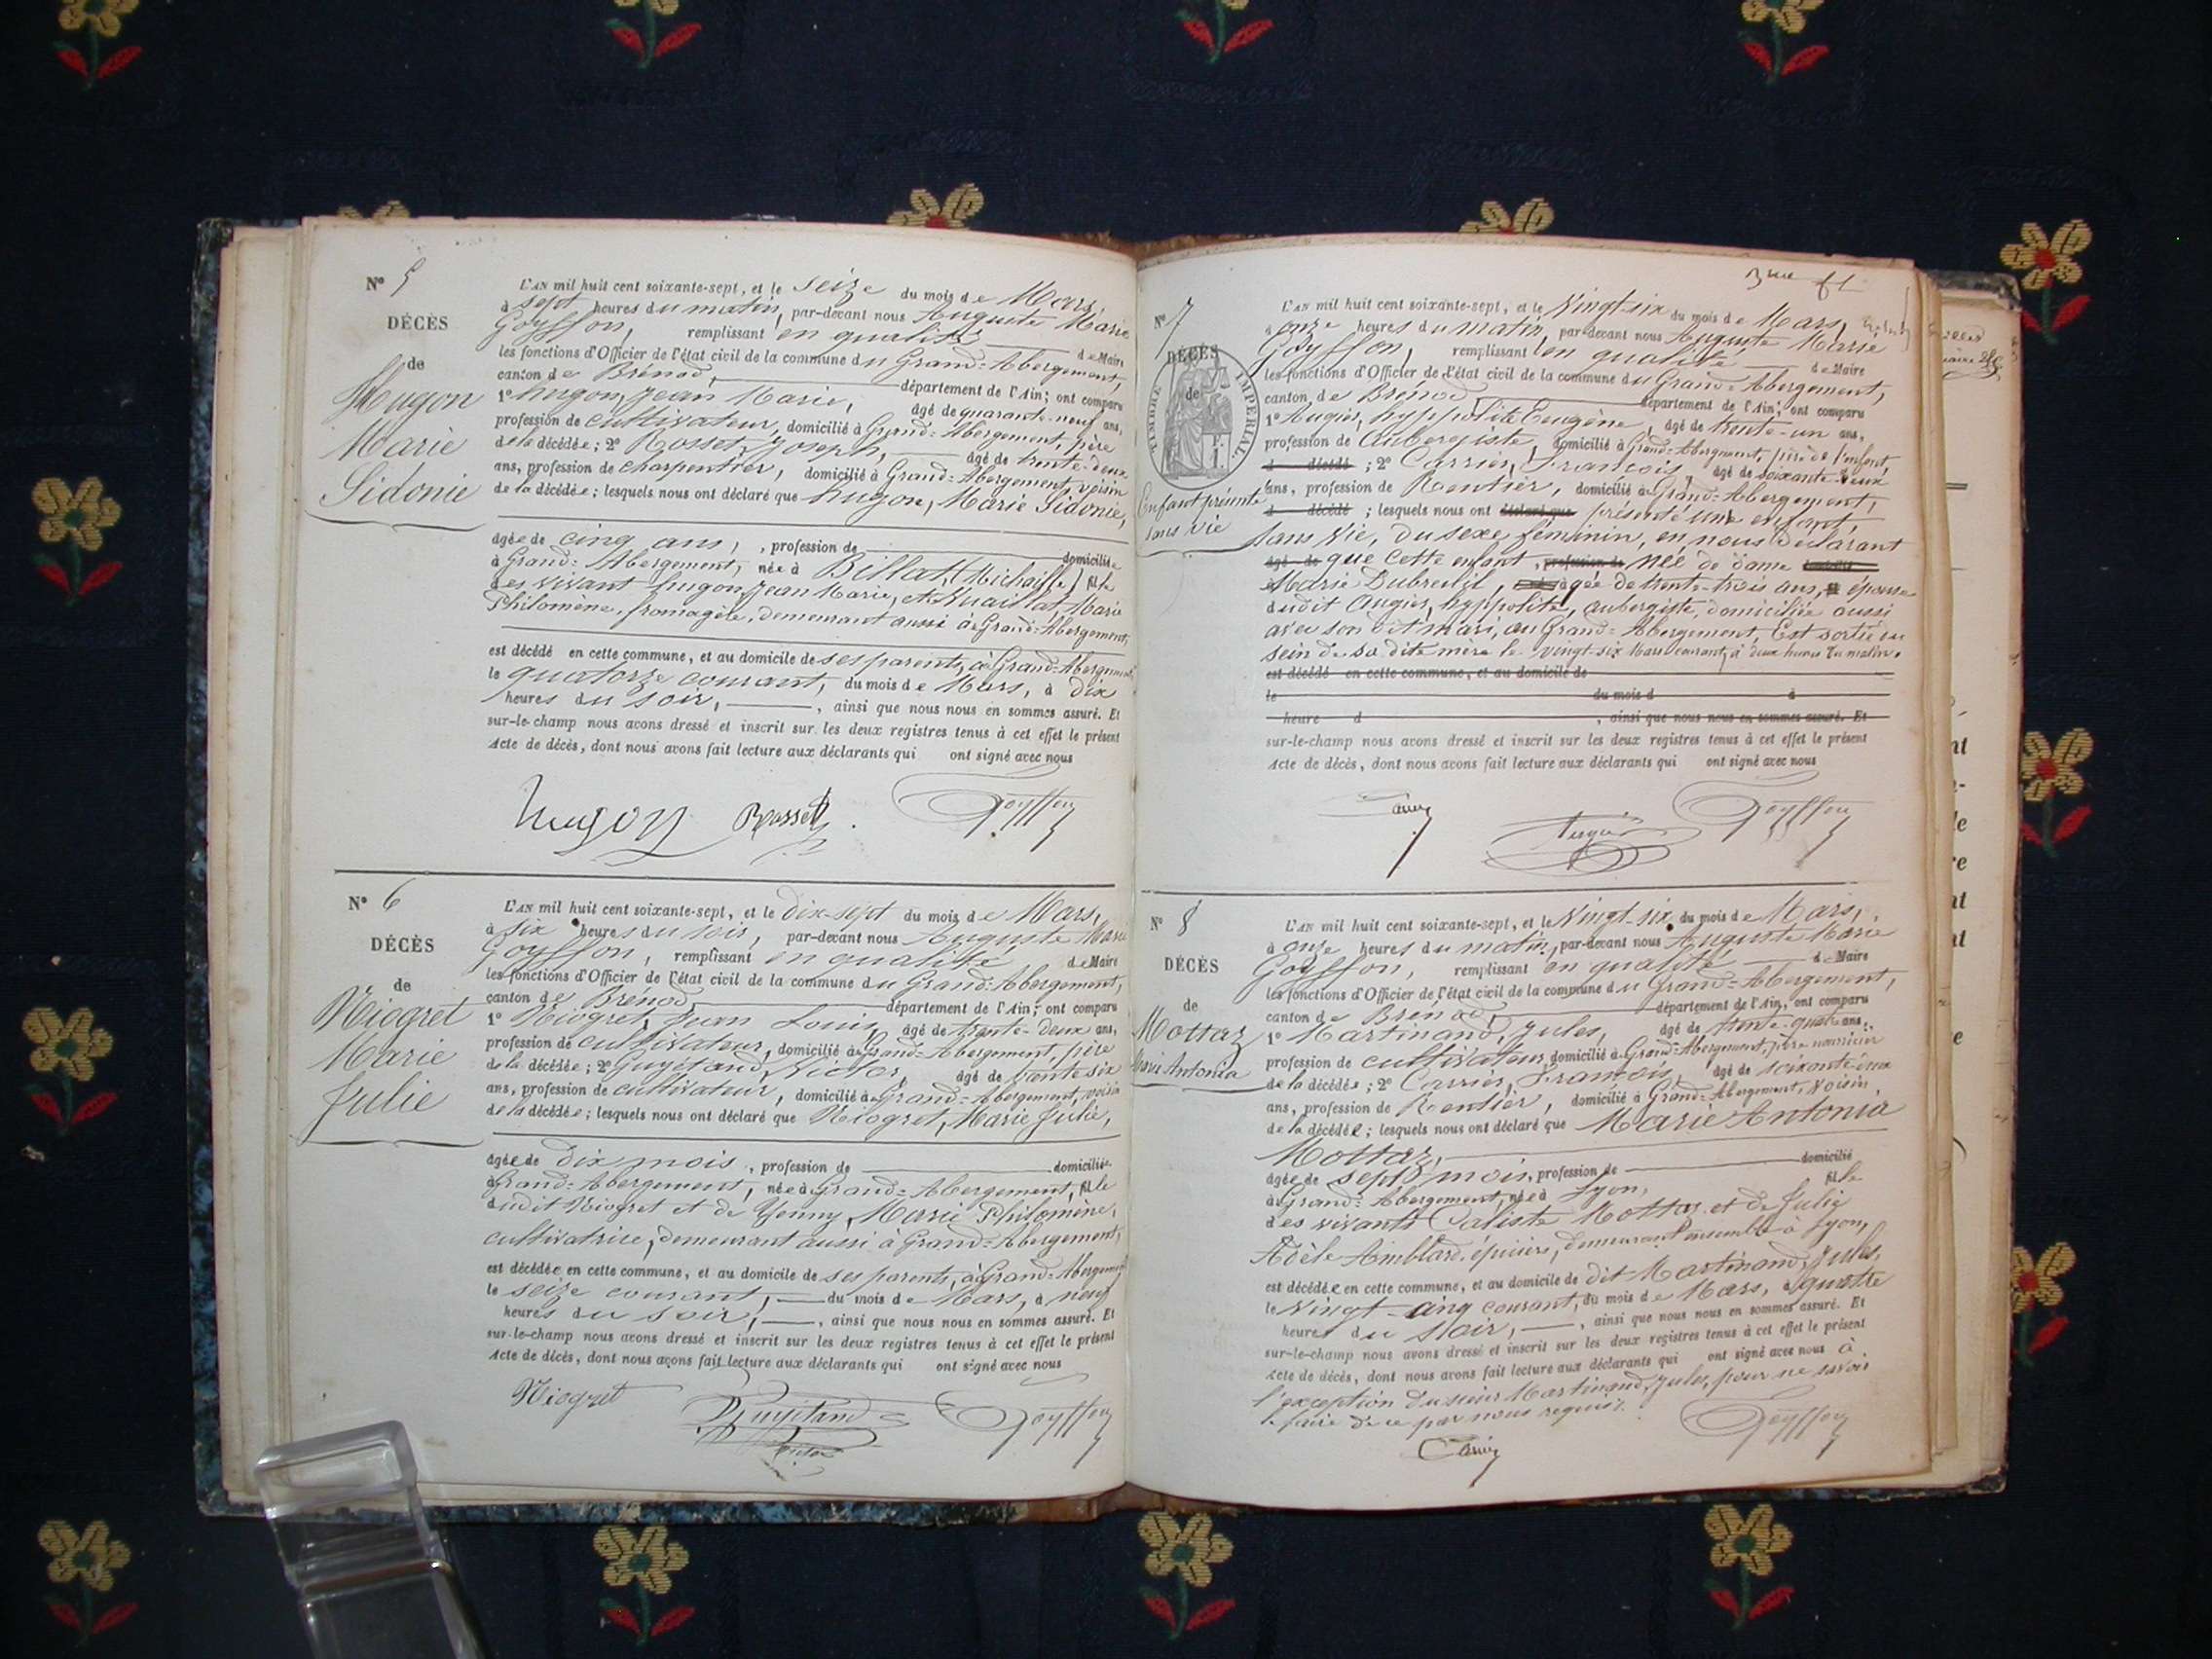 N° 5
DÉCÈS
de
Hugon
Marie
Sidonie
L'AN mil huit cent soixante-sept, et le seize du mois de Mars,
à sept heures du matin, par-devant nous Auguste Marie
Goyffon, remplissant en qualité de Maire
les fonctions d'Officier de l'état civil de la commune du Grand-Abergement,
canton de Brénod, département de l'Ain; ont comparu
1° hugon, Jean Marie, âgé de quarante-neuf ans,
profession de cultivateur, domicilié à Grand-Abergement, père
de la décédée; 2° Rosset, Joseph, âgé de trente-deux
ans, profession de charpentier, domicilié à Grand-Abergement, voisin
de la décédée; lesquels nous ont déclaré que hugon, Marie Sidonie,
âgée de cinq ans, , profession de domiciliée
à Grand-Abergement, née à Billat, (Michaille) fille
des vivant hugon, Jean Marie, et Marie
Philomène, fromagère, demeurant aussi à Grand-Abergement,
est décédé en cette commune, et au domicile de ses parents, à Grand-Abergement
le quatorze courant, du mois de Mars, à dix
heures du soir, , ainsi que nous nous en sommes assuré. Et
sur-le-champ nous avons dressé et inscrit sur les deux registres tenus à cet effet le présent
Acte de décès, dont nous avons fait lecture aux déclarants qui ont signé avec nous
hugon Rosset Goyffon
N° 6
DÉCÈS
de
Niogret
Marie
Julie
L'AN mil huit cent soixante-sept, et le dix-sept du mois de Mars,
à six heures du soir, par-devant nous Auguste Marie
Goyffon, remplissant en qualité de Maire
les fonctions d'Officier de l'état civil de la commune du Grand-Abergement,
canton de Brénod, département de l'Ain; ont comparu
1° Niogret, Jean Louis, âgé de trente-deux ans,
profession de cultivateur, domicilié à Grand-Abergement, père
de la décédée; 2° Guyétand, Victor, âgé de
ans, profession de cultivateur, domicilié à Grand-Abergement, voisin
de la décédée; lesquels nous ont déclaré que Niogret, Marie Julie,
âgée de dix mois, profession de domiciliée
à Grand-Abergement, née à Grand-Abergement, fille
dudit Niogret et de Yenny, Marie Philomène,
cultivatrice, demeurant aussi à Grand-Abergement,
est décédée en cette commune, et au domicile de ses parents, à Grand-Abergement
le seize courant, du mois de Mars, à neuf
heures du soir, , ainsi que nous nous en sommes assuré. Et
sur-le-champ nous avons dressé et inscrit sur les deux registres tenus à cet effet le présent
Acte de décès, dont nous avons fait lecture aux déclarants qui ont signé avec nous
Niogret Guyétand Goyffon
Victor
3me f1
N° 7
DÉCÈS
de
TIMBRE IMPÉRIAL
1 F.
Enfant présenté
sans vie
L'AN mil huit cent soixante-sept, et le Vingt-six du mois de Mars,
à onze heures du matin, par-devant nous Auguste Marie
Goyffon, remplissant en qualité de Maire
les fonctions d'Officier de l'état civil de la commune du Grand-Abergement,
canton de Brénod, département de l'Ain; ont comparu
1° Augier, hyppolite Eugène, âgé de trente-un ans,
profession de Aubergiste, domicilié à Grand-Abergement, père de l'enfant,
d décédé ; 2° Carrier, François, âgé de soixante-deux
ans, profession de Rentier, domicilié à Grand-Abergement,
d décédé ; lesquels nous ont déclaré que présenté une enfant,
sans vie, du sexe féminin, en nous déclarant
âgé de que cette enfant, profession de née de dame
Marie Dubreuil, âgée de trente-trois ans, épouse
dudit Augier, hyppolite, aubergiste, domiciliée aussi
avec son dit mari, au Grand-Abergement, Est sortie du
sein de sa dite mère le vingt-six Mars courant, à deux heures du matin.
est décédé en cette commune, et au domicile de
le du mois d à
heure d , ainsi que nous nous en sommes assuré. Et
sur-le-champ nous avons dressé et inscrit sur les deux registres tenus à cet effet le présent
Acte de décès, dont nous avons fait lecture aux déclarants qui ont signé avec nous
Augier Goyffon
N° 8
DÉCÈS
de
Mottaz
Marie Antonia
L'AN mil huit cent soixante-sept, et le Vingt-six du mois de Mars,
à onze heures du matin, par-devant nous Auguste Marie
Goyffon, remplissant en qualité de Maire
les fonctions d'Officier de l'état civil de la commune du Grand-Abergement,
canton de Brénod, département de l'Ain; ont comparu
1° Martinand, Jules, âgé de trente-quatre ans,
profession de cultivateur, domicilié à Grand-Abergement, père nourricier
de la décédée; 2° Carrier, François, âgé de soixante-deux
ans, profession de Rentier, domicilié à Grand-Abergement, Voisin
de la décédée; lesquels nous ont déclaré que Marie Antonia
Mottaz, domicilié
âgée de sept mois, profession de fille
à Grand-Abergement, née à Lyon,
des vivants Caliste Mottaz et de Julie
Adèle Aimblard, épicière, demeurant ensemble à Lyon,
est décédée en cette commune, et au domicile de dit Martinand, Jules,
le Vingt-cinq courant, du mois de Mars, à quatre
heures du soir, , ainsi que nous nous en sommes assuré. Et
sur-le-champ nous avons dressé et inscrit sur les deux registres tenus à cet effet le présent
Acte de décès, dont nous avons fait lecture aux déclarants qui ont signé avec nous à
l'exception du sieur Martinand, Jules, pour ne savoir
le faire de ce par nous requis.
Goyffon